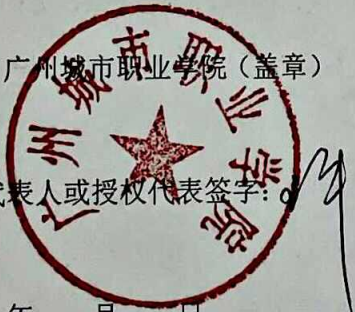 广州城市职业学院（盖章）
广州城市职业学院
代表人或授权代表签字：
年 月 日